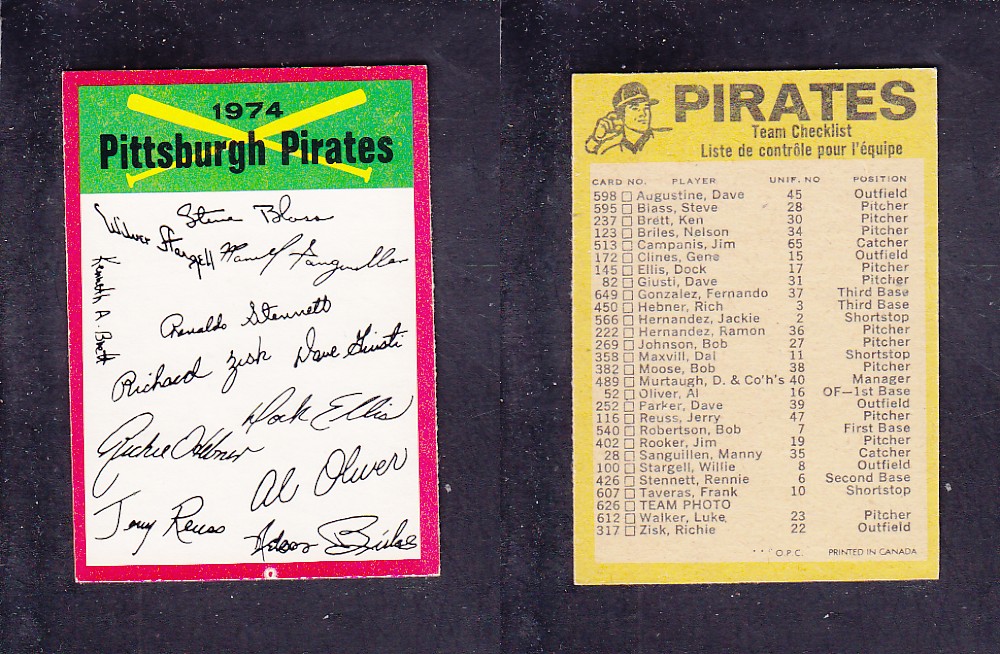 1974
Pittsburgh Pirates
Steve Blass
Wilver Stargell
Manny Sanguillen
Kenneth A. Brett
Renaldo Stennett
Richard Zisk
Dave Giusti
Dock Ellis
Richie Hebner
Al Oliver
Jerry Reuss
Nelson Briles
PIRATES
Team Checklist
Liste de contrôle pour l'équipe
CARD NO. PLAYER UNIF. NO POSITION
598 Augustine, Dave 45 Outfield
595 Blass, Steve 28 Pitcher
237 Brett, Ken 30 Pitcher
123 Briles, Nelson 34 Pitcher
513 Campanis, Jim 65 Catcher
172 Clines, Gene 15 Outfield
145 Ellis, Dock 17 Pitcher
82 Giusti, Dave 31 Pitcher
649 Gonzalez, Fernando 37 Third Base
450 Hebner, Rich 3 Third Base
566 Hernandez, Jackie 2 Shortstop
222 Hernandez, Ramon 36 Pitcher
269 Johnson, Bob 27 Pitcher
358 Maxvill, Dal 11 Shortstop
382 Moose, Bob 38 Pitcher
489 Murtaugh, D. & Co'h's 40 Manager
52 Oliver, Al 16 OF—1st Base
252 Parker, Dave 39 Outfield
116 Reuss, Jerry 47 Pitcher
540 Robertson, Bob 7 First Base
402 Rooker, Jim 19 Pitcher
28 Sanguillen, Manny 35 Catcher
100 Stargell, Willie 8 Outfield
426 Stennett, Rennie 6 Second Base
607 Taveras, Frank 10 Shortstop
626 TEAM PHOTO
612 Walker, Luke 23 Pitcher
317 Zisk, Richie 22 Outfield
O.P.C. PRINTED IN CANADA